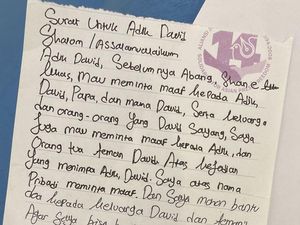 Surat Untuk Adik David
Shalom / Assalamualaikum
Adik David, Sebelumnya Abang, Shane
Lukas, Mau meminta maaf kepada Adik
David, Papa, dan mama David, Serta keluarga
dan orang-orang yang David Sayang, Saya
Juga mau meminta maaf kepada Adik, dan
Orang tua temen David Atas kejadian
yang menimpa Adik David. Saya atas nama
Pribadi meminta maaf. Dan Saya mohon bantu
doa kepada keluarga David dan temen
Agar Saya bisa